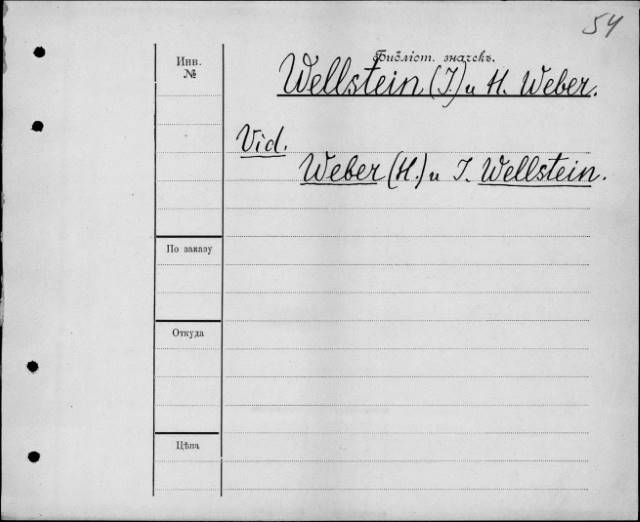 54
Инв.
№
Библіот. значекъ.
Wellstein (J.) u H. Weber.
Vid.
Weber (H.) u J. Wellstein.
По заказу
Откуда
Цѣна